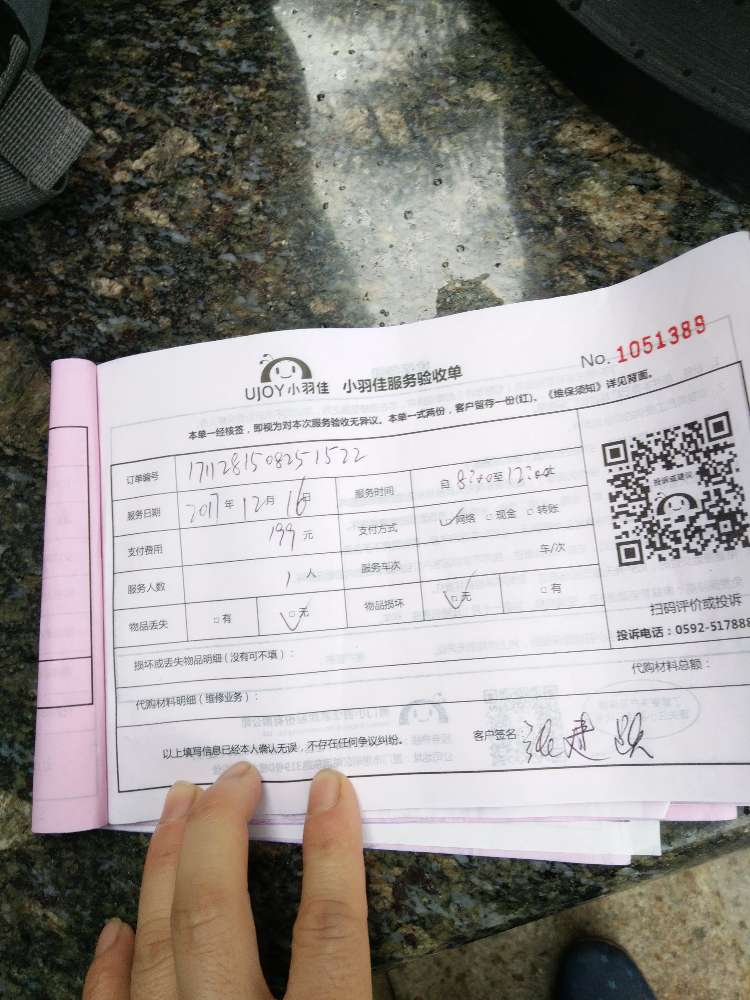 UJOY小羽佳 小羽佳服务验收单 No. 1051389
本单一经核签，即视为对本次服务验收无异议。本单一式两份，客户留存一份(红)。《维保须知》详见背面。
订单编号 1711281508251522
服务日期 2017年12月16日 服务时间 自8:30至12:00
支付费用 199元 支付方式 网络 现金 转账
服务人数 1人 服务车次 车/次
物品丢失 有 无 物品损坏 无 有
投诉或建议
扫码评价或投诉
投诉电话：0592-517888
损坏或丢失物品明细（没有可不填）：
代购材料明细（维修业务）： 代购材料总额：
以上填写信息已经本人确认无误，不存在任何争议纠纷。 客户签名 张建跃